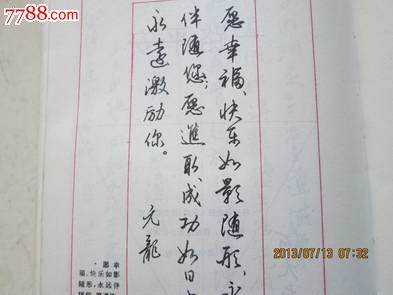 7788.com
愿幸福、快乐如影随形，
伴随您；愿進取、成功如日
永遠激励你。
元龍
愿幸
福、快乐如影
随形，永远伴
2013/07/13 07:32